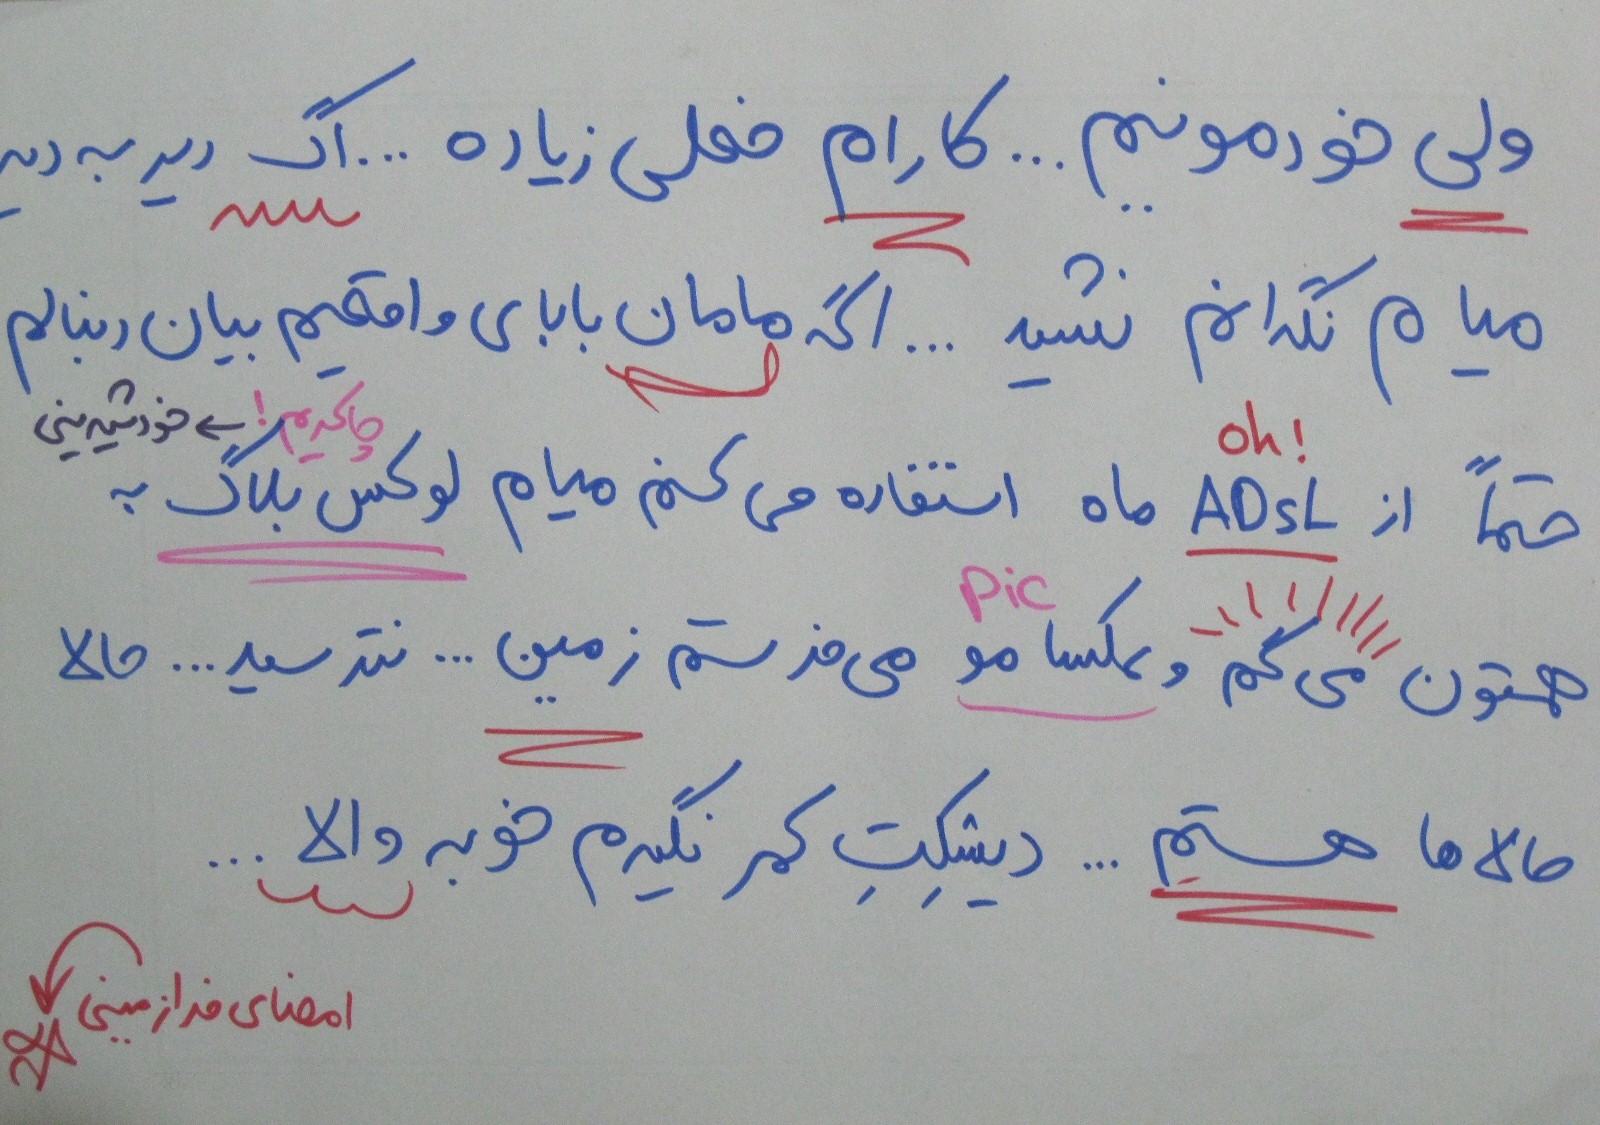 ولی خودمونیم ... کارام خعلی زیاده ... اگ دیر به دیر
میام نگرانم نشید ... اگه مامان بابای واقعیم بیان دنبالم
چاکریم! ← خودشیرینی
oh!
حتماً از ADSL ماه استفاده می کنم میام لوکس بلاگ به
pic
همتون می گم و عکسا مو می فرستم زمین ... نترسید ... حالا
حالا ها هستیم ... دیشکِتِ کمر نگیرم خوبه والا ...
امضای فرازمینی